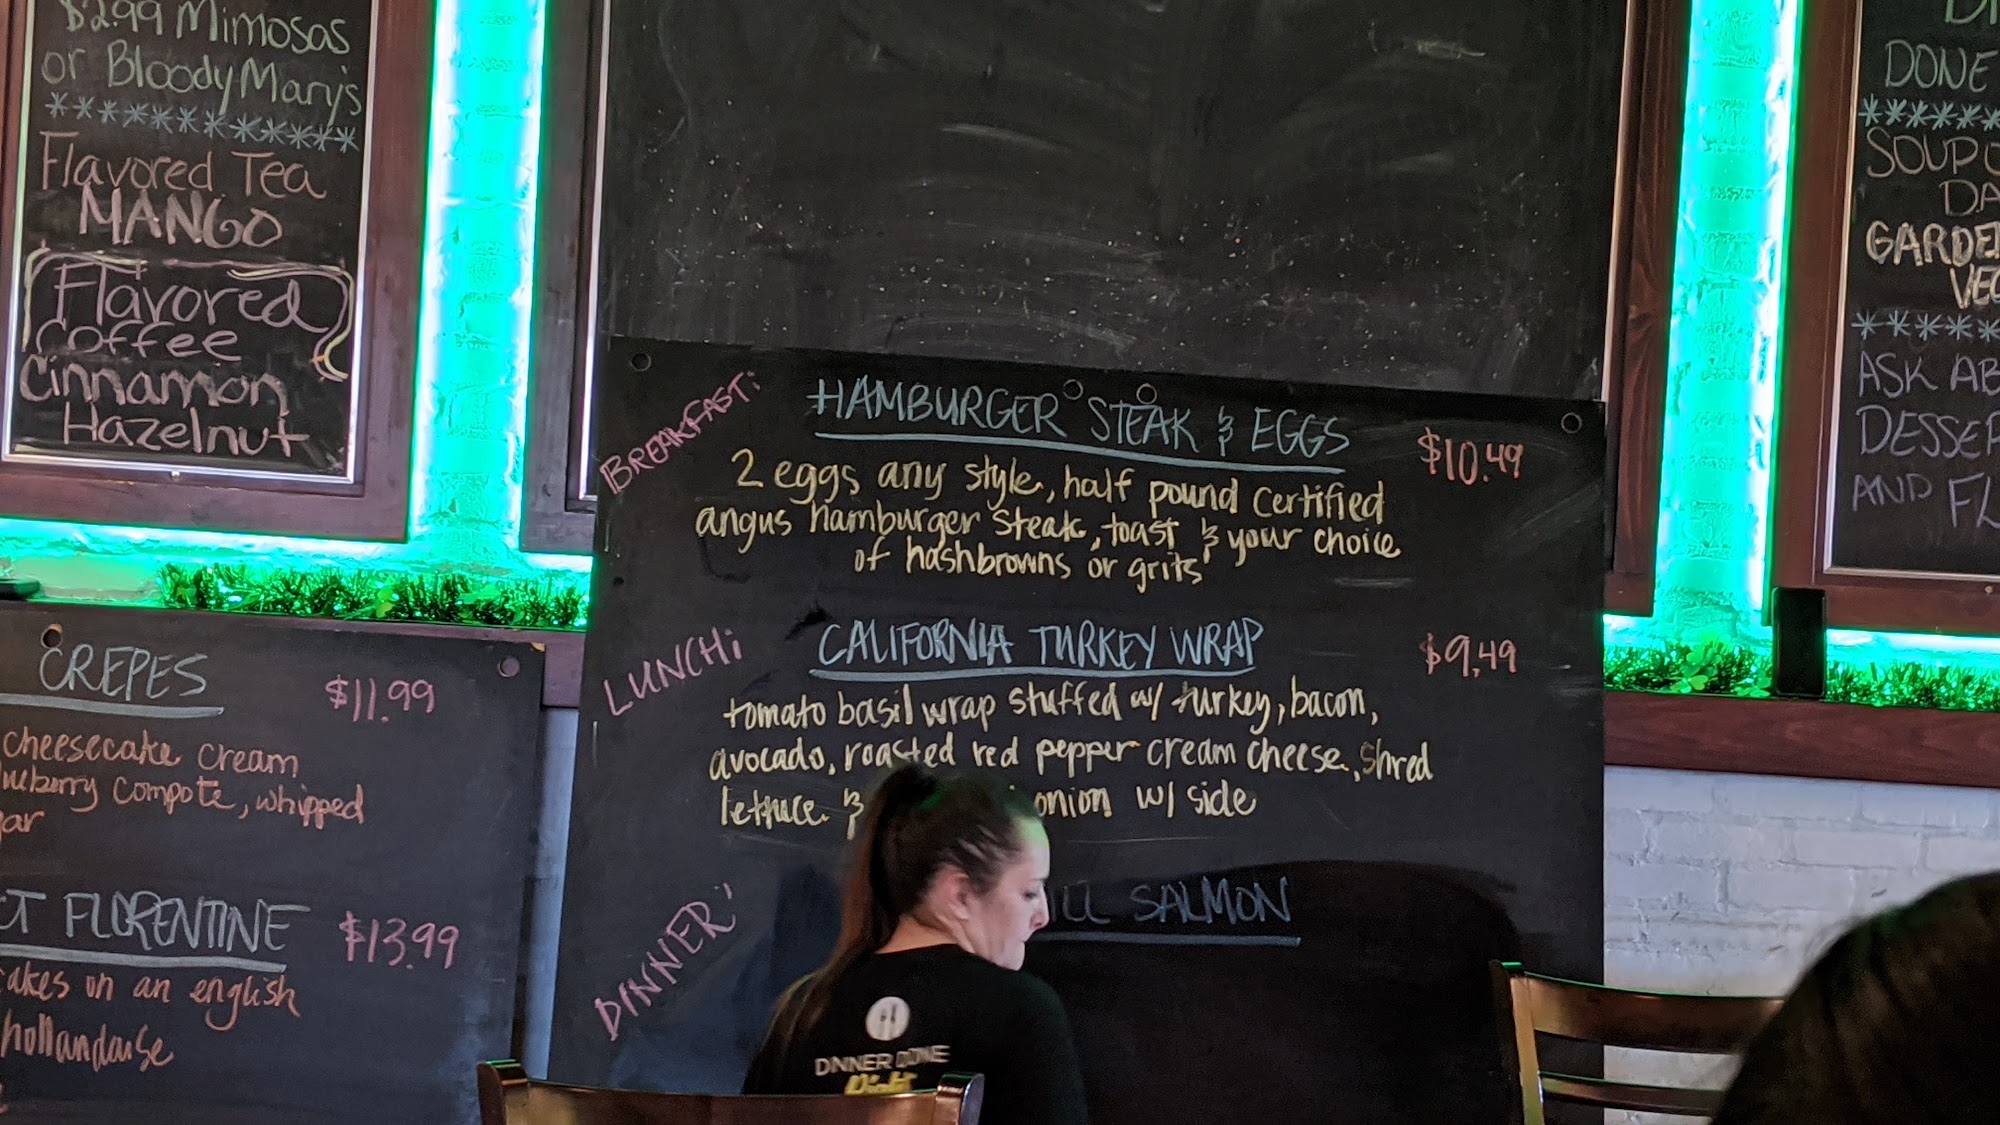 $2.99 Mimosas
or Bloody Mary's
***********
Flavored Tea
MANGO
Flavored
Coffee
Cinnamon
Hazelnut
CREPES $11.99
cheesecake cream
compote, whipped
FLORENTINE $13.99
on an english
hollandaise
BREAKFAST:
HAMBURGER STEAK & EGGS $10.49
2 eggs any style, half pound certified
angus hamburger steak, toast & your choice
of hashbrowns or grits
LUNCH:
CALIFORNIA TURKEY WRAP $9.49
tomato basil wrap stuffed w/ turkey, bacon,
avocado, roasted red pepper cream cheese, shred
lettuce & onion w/ side
DINNER:
SALMON
DINNER DONE
DONE
SOUP
GARDEN
ASK
AND